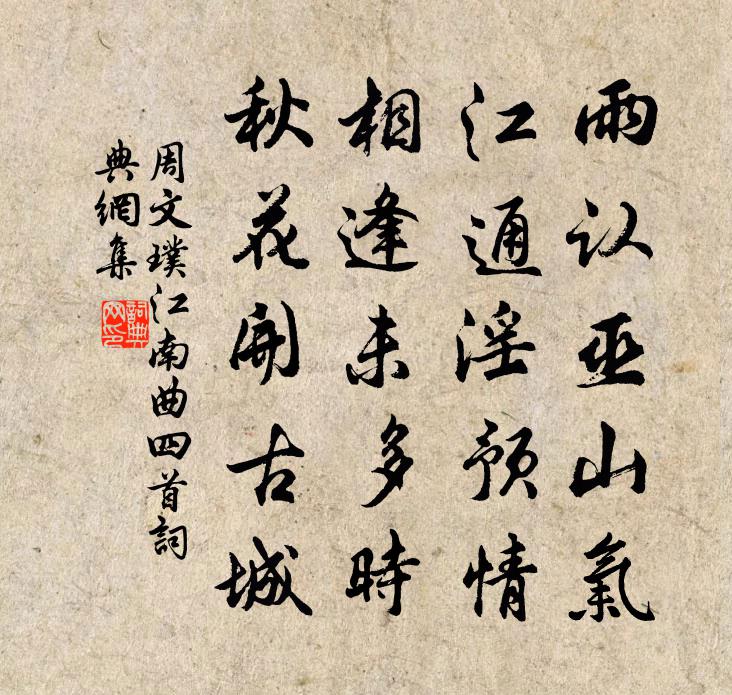 雨认巫山氣
江通淫预情
相逢未多時
秋花開古城
周文璞江南曲四首詞
典網集
詞典
网印